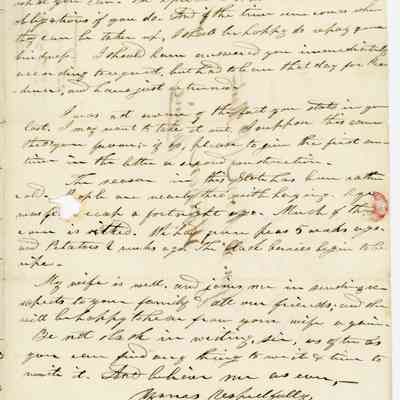 what you can. In
obligations of you do. And if the time ever comes when
they can be taken up, I shall be happy to repay your
kindness. I should have answered you immediately
according to request, but had to leave that day for
and have just returned.
I was not aware of the fact you state in your
last. I may want to take it out. I suppose this came
through your favour; if so, please to give the first
time in the letter a second construction.
The season in this State has been rather
cold. People are nearly through with haying. I
a fortnight ago. Much of the
corn is . We had green peas 5 weeks ago.
and Potatoes 2 weeks ago. The black berries begin to be
ripe.
My wife is well, and joins me in sending re-
spects to your family & all our friends; and she
will be happy to hear from your wife again.
Be not slack in writing, sir, as often as
you can find any thing to write & time to
write it. And believe me as ever,—
Yours respectfully,